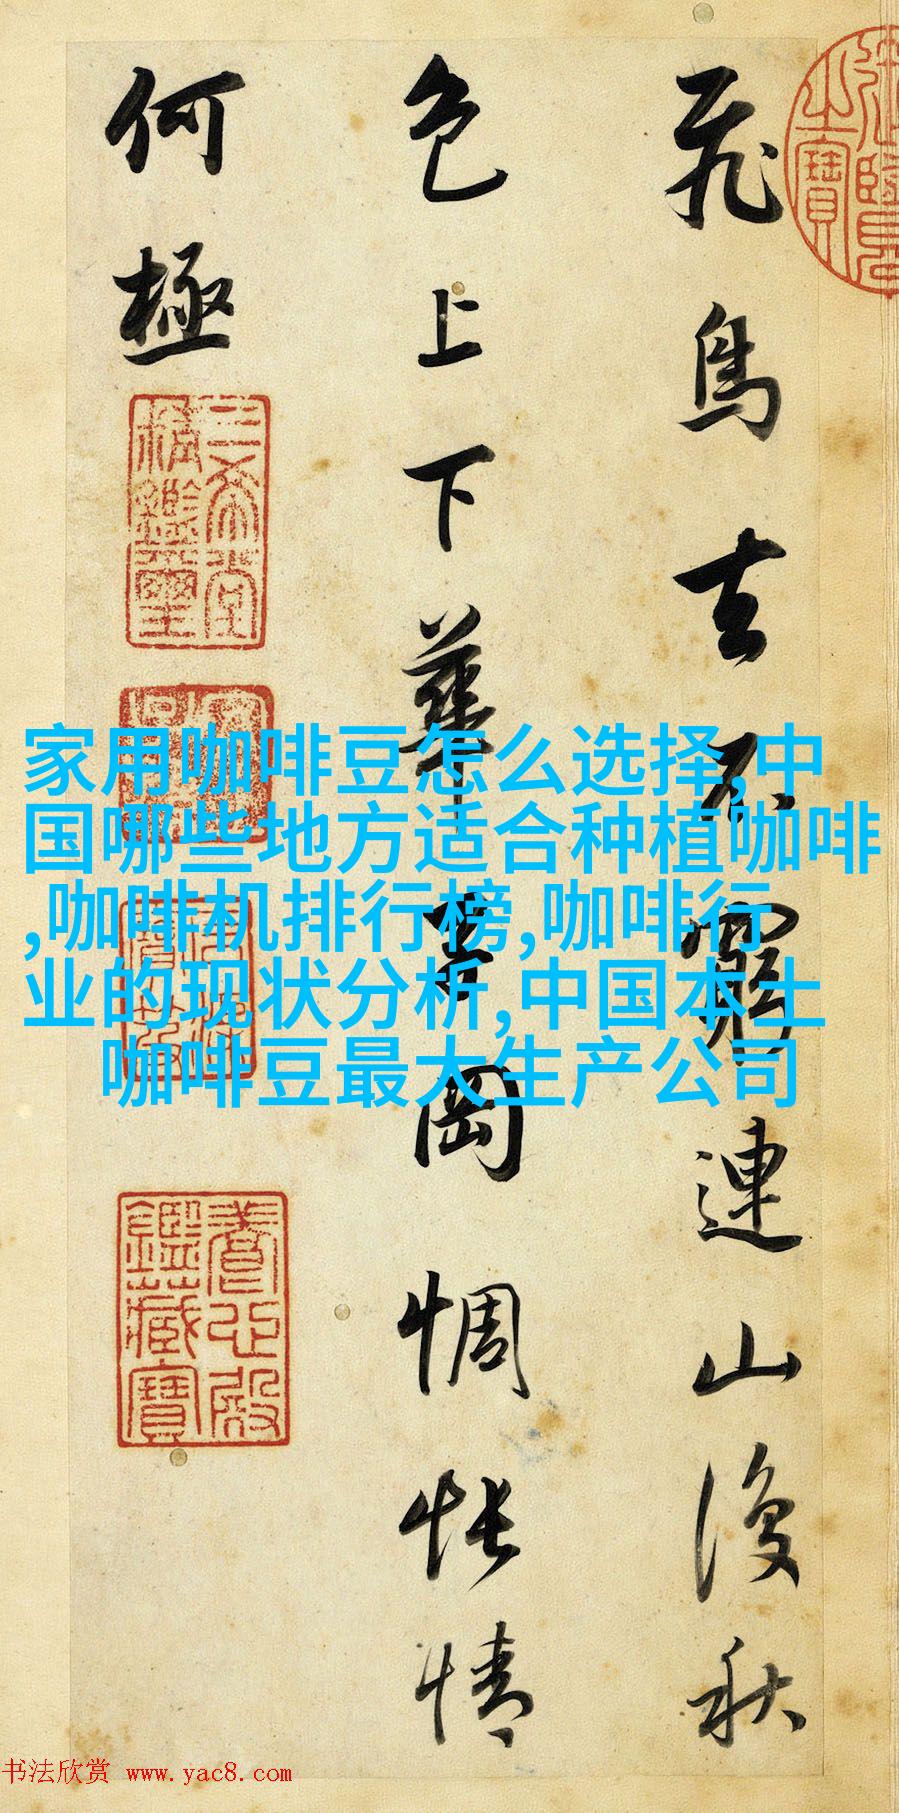 飛鳥去不窮連山復秋
色上下華子岡惆悵情
何極
三希堂精鑑璽
宜子孫
養心殿鑑藏寶
家用咖啡豆怎么选择,中
国哪些地方适合种植咖啡
,咖啡机排行榜,咖啡行
业的现状分析,中国本土
咖啡豆最大生产公司
书法欣赏 www.yac8.com